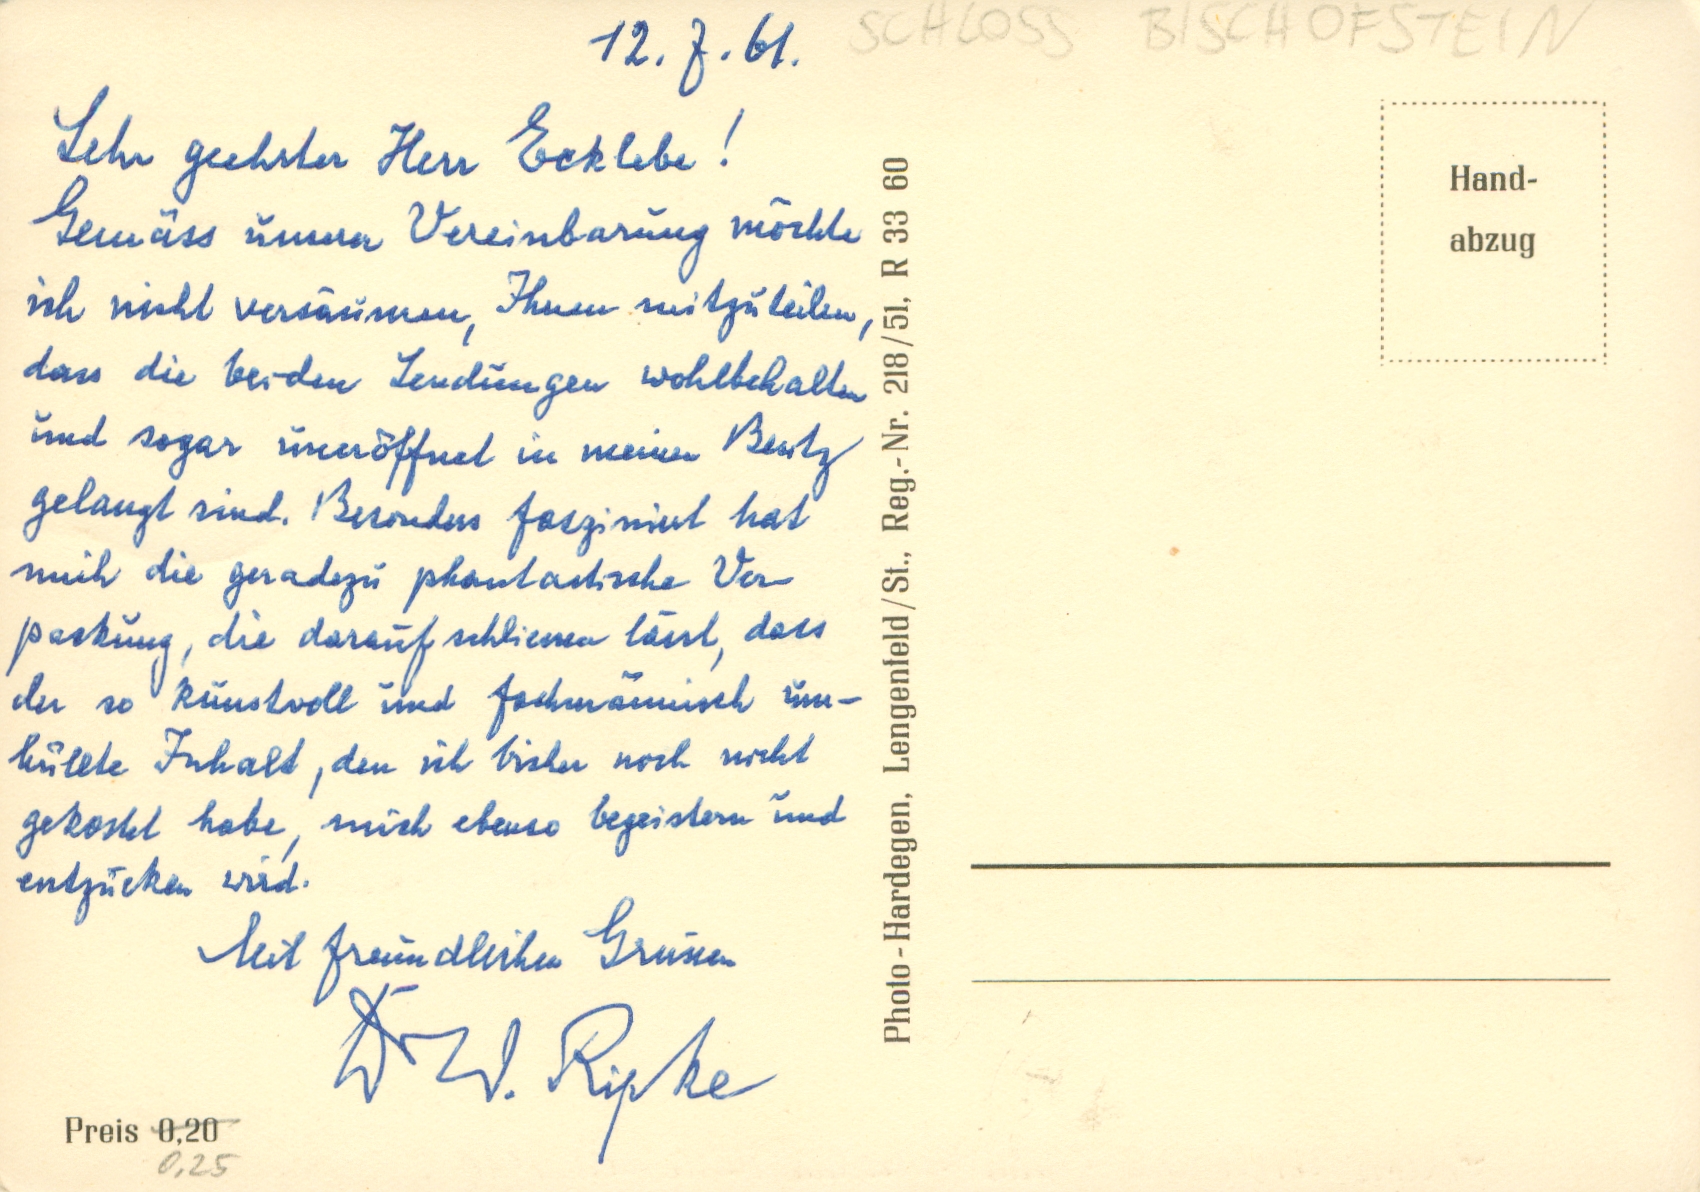 12. 7. 61.
SCHLOSS BISCHOFSTEIN
Sehr geehrter Herr Ecklebe!
Gemäss unserer Vereinbarung möchte
ich nicht versäumen, Ihnen mitzuteilen,
dass die beiden Sendungen wohlbehalten
und sogar uneröffnet in meinen Besitz
gelangt sind. Besonders fasziniert hat
mich die geradezu phantastische Ver-
packung, die darauf schliessen lässt, dass
der so kunstvoll und fachmännisch um-
hüllte Inhalt, den ich bisher noch nicht
gekostet habe, mich ebenso begeistern und
entzücken wird.
Mit freundlichen Grüssen
Dr W. Ripke
Preis 0,20
0,25
Photo-Hardegen, Lengenfeld/St., Reg.-Nr. 218/51, R 33 60
Hand-
abzug